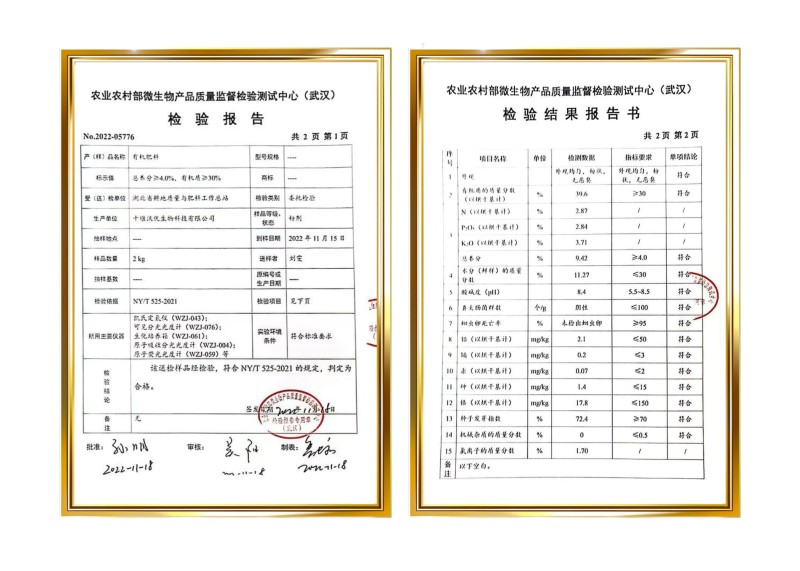 农业农村部微生物产品质量监督检验测试中心（武汉）
检 验 报 告
No.2022-05776 共 2 页 第 1 页
产（样）品名称 有机肥料 型号规格 ----
标示值 总养分≥4.0%，有机质≥30% 商标 ----
受（送）检单位 湖北省耕地质量与肥料工作总站 检验类别 委托检验
生产单位 十堰沃优生物科技有限公司 样品等级、状态 粉剂
抽样地点 ---- 到样日期 2022 年 11 月 15 日
样品数量 2 kg 送样者 刘雯
抽样基数 ---- 原编号或生产日期 ----
检验依据 NY/T 525-2021 检验项目 见下页
所用主要仪器
凯氏定氮仪（WZJ-043）；
可见分光光度计（WZJ-076）；
生化培养箱（WZJ-061）；
原子吸收分光光度计（WZJ-004）；
原子荧光光度计（WZJ-059）等
实验环境条件 符合标准要求
检验结论
该送检样品经检验，符合 NY/T 525-2021 的规定，判定为
合格。
检验报告专用章
（武汉）
备注 无
批准： 审核： 制表：
2022-11-18
2022-11-18
农业农村部微生物产品质量监督检验测试中心（武汉）
检 验 结 果 报 告 书
共 2 页 第 2 页
序号 项目名称 单位 检测数据 指标要求 单项结论
1 外观 外观均匀，粉状，无恶臭 外观均匀，粉状，无恶臭 符合
2 有机质的质量分数（以烘干基计） % 39.6 ≥30 符合
3 N（以烘干基计） % 2.87 / /
P₂O₅（以烘干基计） % 2.84 / /
K₂O（以烘干基计） % 3.71 / /
总养分 % 9.42 ≥4.0 符合
4 水分（鲜样）的质量分数 % 11.27 ≤30 符合
5 酸碱度（pH） 8.4 5.5~8.5 符合
6 粪大肠菌群数 个/g 阴性 ≤100 符合
7 蛔虫卵死亡率 % 未检出蛔虫卵 ≥95 符合
8 铅（以烘干基计） mg/kg 2.1 ≤50 符合
9 镉（以烘干基计） mg/kg 0.2 ≤3 符合
10 汞（以烘干基计） mg/kg 0.07 ≤2 符合
11 砷（以烘干基计） mg/kg 1.4 ≤15 符合
12 铬（以烘干基计） mg/kg 17.8 ≤150 符合
13 种子发芽指数 % 72.4 ≥70 符合
14 机械杂质的质量分数 % 0 ≤0.5 符合
15 氯离子的质量分数 % 1.70 / /
备注 以下空白。